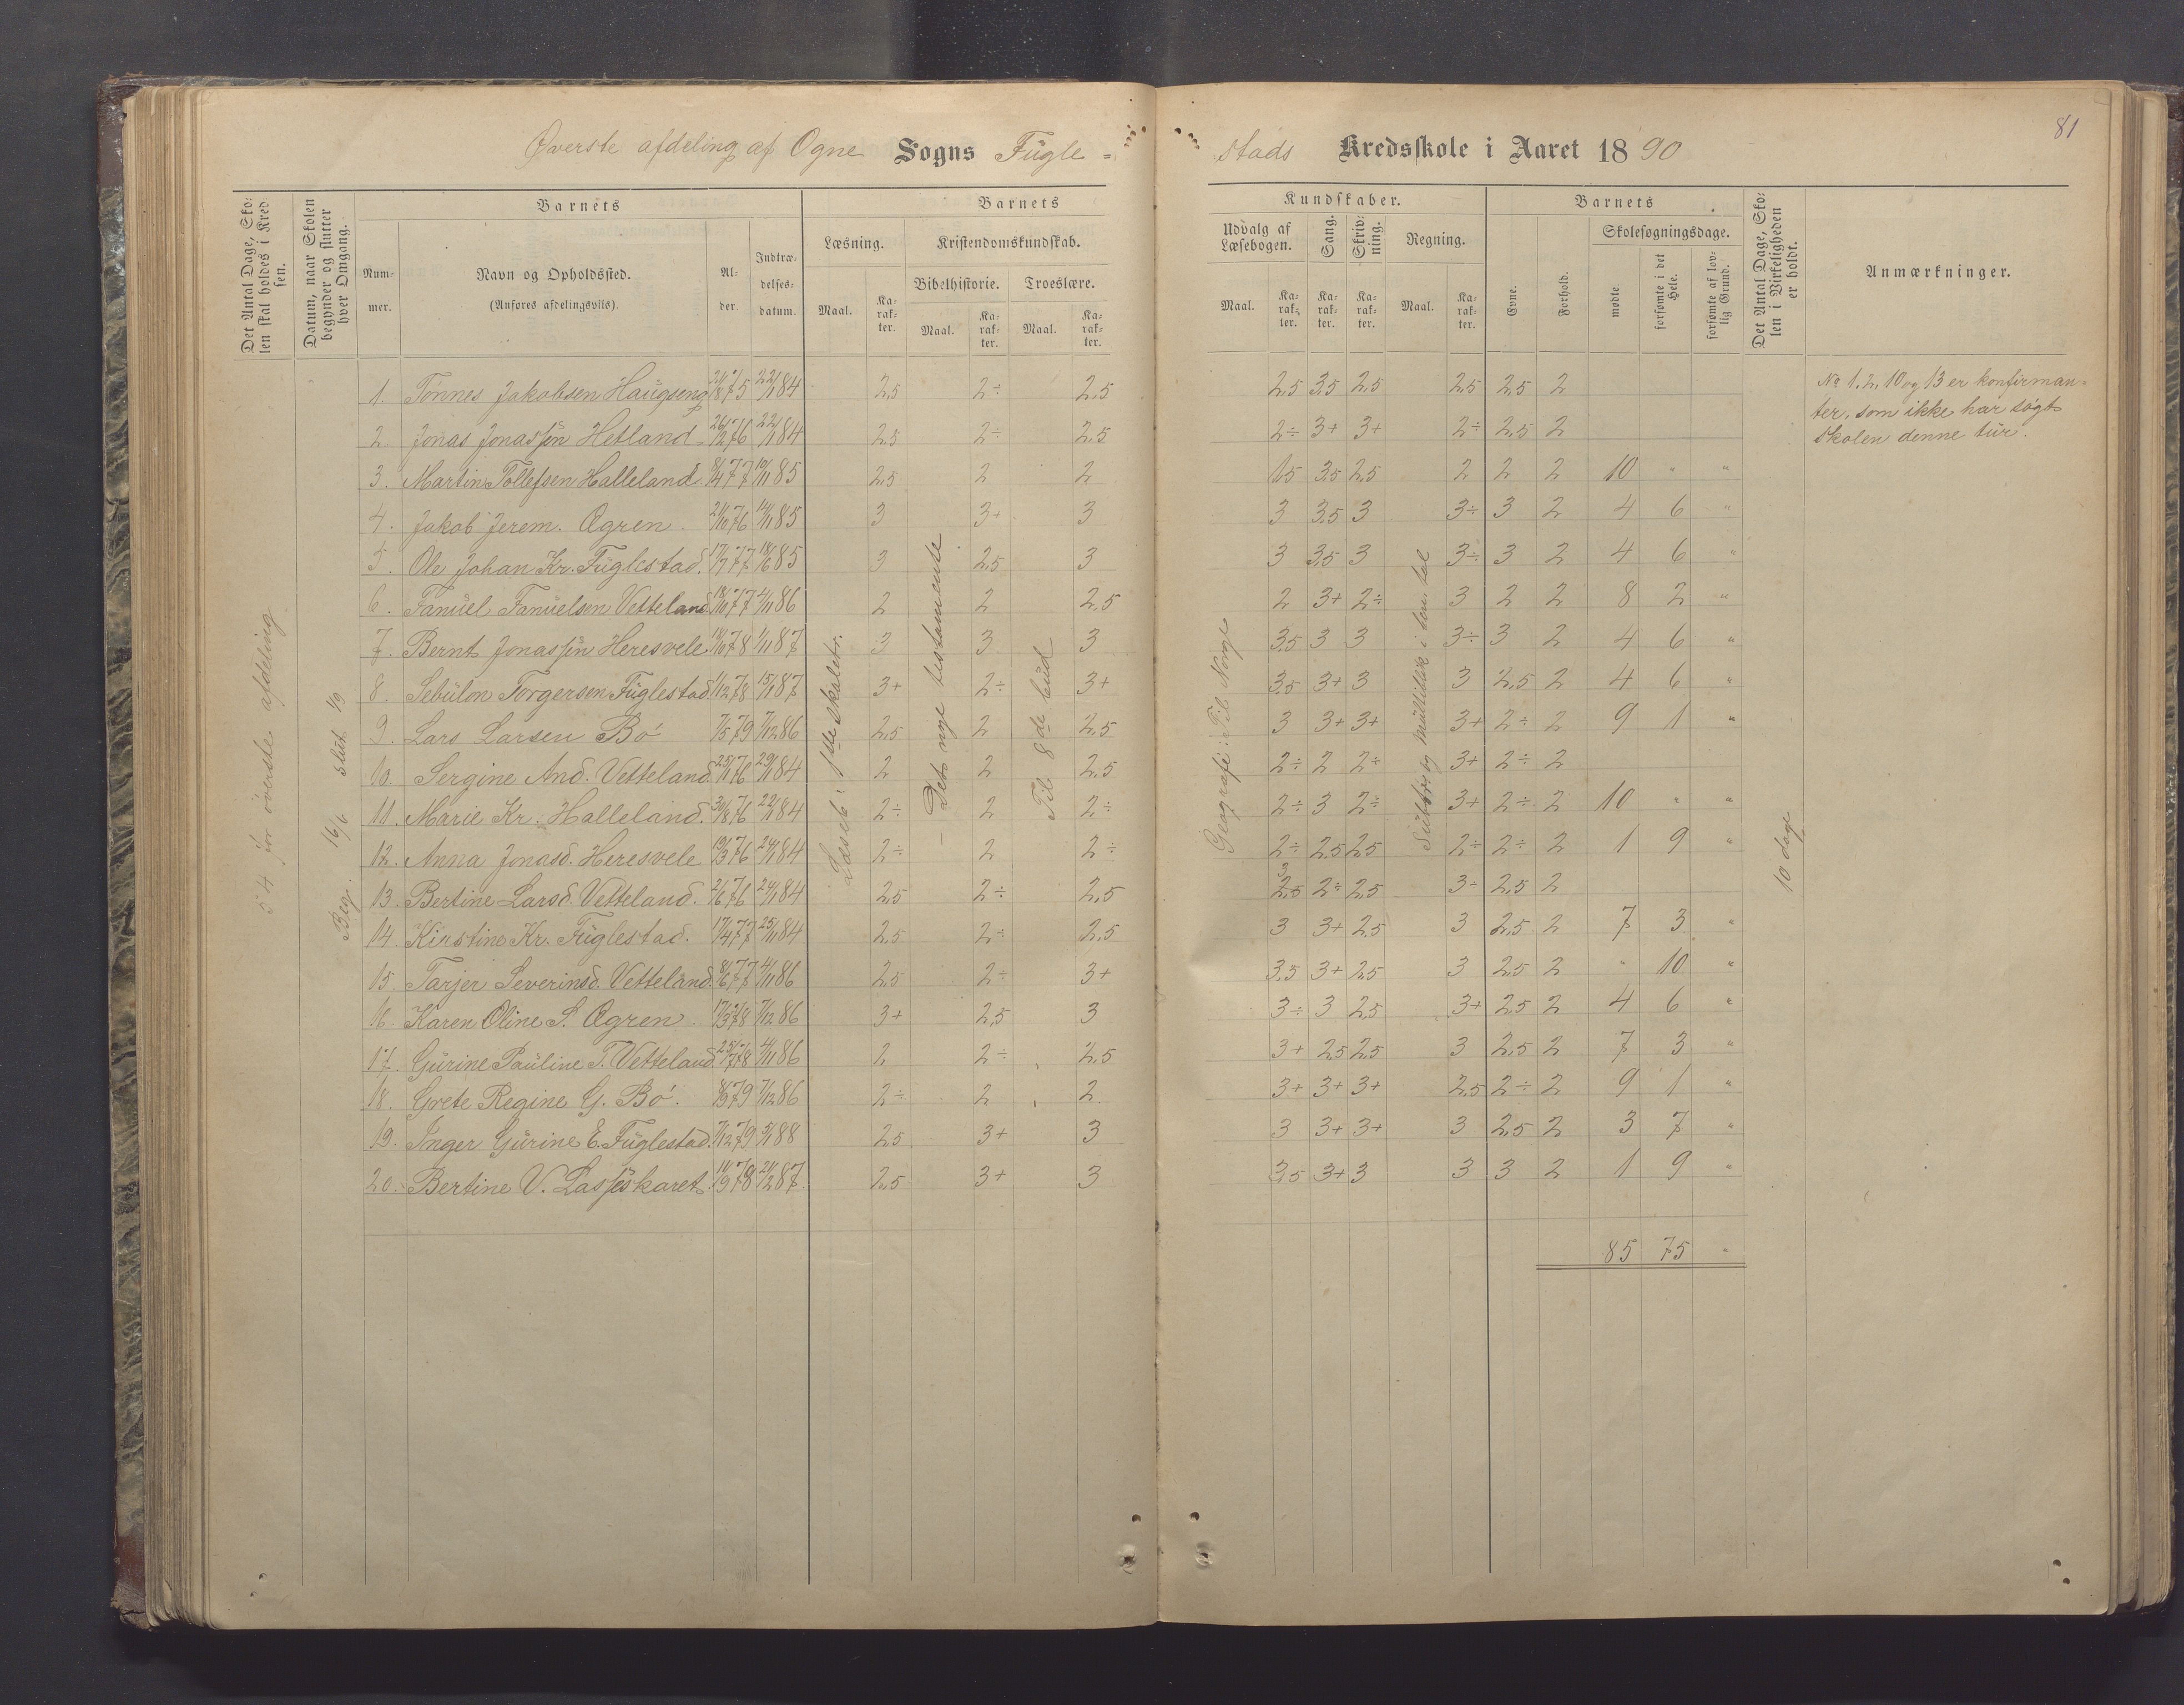 81
Øverste afdeling af Ogne Sogns Fügle =
stads Kredsskole i Aaret 1890
Det Antal Dage, Skolen skal holdes i Kredsen.
Datum, naar Skolen begynder og slutter hver Omgang.
Barnets
Nummer.
Navn og Opholdssted.
(Anføres afdelingsvis).
Alder.
Indtrædelsesdatum.
Barnets
Læsning.
Maal.
Karakter.
Kristendomskundskab.
Bibelhistorie.
Maal.
Karakter.
Troeslære.
Maal.
Karakter.
Kundskaber.
Udvalg af Læsebogen.
Maal.
Karakter.
Sang.
Karakter.
Skrivning.
Karakter.
Regning.
Maal.
Karakter.
Barnets
Evne.
Forhold.
Skolesøgningsdage.
mødte.
forsømte i det Hele.
forsømte af lovlig Grund.
Det Antal Dage, Skolen i Virkeligheden er holdt.
Anmærkninger.
54 for øverste afdeling
Beg. 16/6 slut. 1/9
Det nye testamente
Til 8de bud
Geografi: Til Norge
10 dage
1. Tönnes Jakobsen Haugseng 22/1 84 2,5 2÷ 2,5 2,5 3,5 2,5 2,5 2,5 2
2. Jonas Jonassen Hetland 26/12 76 22/1 84 2,5 2÷ 2,5 2÷ 3+ 3+ 2÷ 2,5 2
3. Martin Tollefsen Halleland 8/4 77 19/11 85 2,5 2 2 1,5 3,5 2,5 2 2 2 10 " "
4. Jakob Jerem. Ogren. 21/10 76 14/11 85 3 3+ 3 3 3,5 3 3÷ 3 2 4 6 "
5. Ole Johan Kr. Füglestad. 17/7 77 18/6 85 3 2,5 3 3 3,5 3 3÷ 3 2 4 6 "
6. Fanüel Fanüelsen Vetteland 18/10 77 4/11 86 2 2 2,5 2 3+ 2÷ 3 2 2 8 2 "
7. Bernt Jonassen Heresvele 1/11 87 3 3 3 3,5 3 3 3÷ 3 2 4 6 "
8. Sebülon Torgersen Füglestad 1/12 78 15/1 87 3+ 2÷ 3+ 3,5 3+ 3 3 2,5 2 4 6 "
9. Lars Larsen Bö 7/5 79 7/12 86 2,5 2 2,5 3 3+ 3+ 3+ 2÷ 2 9 1 "
10. Sergine And. Vetteland 25/1 76 29/1 84 2 2 2,5 2÷ 2 2÷ 3+ 2÷ 2
11. Marie Kr. Halleland. 30/8 76 22/1 84 2÷ 2 2÷ 2÷ 3 2÷ 3+ 2÷ 2 10 " "
12. Anna Jonasd. Heresvele 19/3 76 24/1 84 2÷ 2 2÷ 2÷ 2,5 2,5 2÷ 2÷ 2 1 9 "
13. Bertine Larsd. Vetteland. 2/6 76 24/1 84 2,5 2÷ 2,5 2,5 2÷ 2,5 3÷ 2,5 2
14. Kirstine Kr. Füglestad. 17/4 77 25/1 84 2,5 2÷ 2,5 3 3+ 2,5 3 2,5 2 7 3 "
15. Tarjer Severinsd. Vetteland. 8/6 77 4/11 86 2,5 2÷ 3+ 3,5 3+ 2,5 3 2,5 2 " 10 "
16. Karen Oline S. Ogren. 17/3 78 7/12 86 3+ 2,5 3 3÷ 3 2,5 3+ 2,5 2 4 6 "
17. Gürine Pauline T. Vetteland. 25/7 78 4/11 86 2 2÷ 2,5 3+ 2,5 2,5 3 2,5 2 7 3 "
18. Grete Regine G. Bö. 7/12 86 2÷ 2 2 3+ 3+ 3+ 2,5 2÷ 2 9 1 "
19. Inger Gürine E. Füglestad. 7/12 79 5/1 88 2,5 3+ 3 3 3+ 3+ 3 2,5 2 3 7 "
20. Bertine V. Lasseskaret. 11/9 78 21/12 87 2,5 3+ 3 3,5 3+ 3 3 3 2 1 9 "
85 75 "
No 1, 2, 10 og 13 er konfirman=
ter, som ikke har søgt
skolen denne tür.